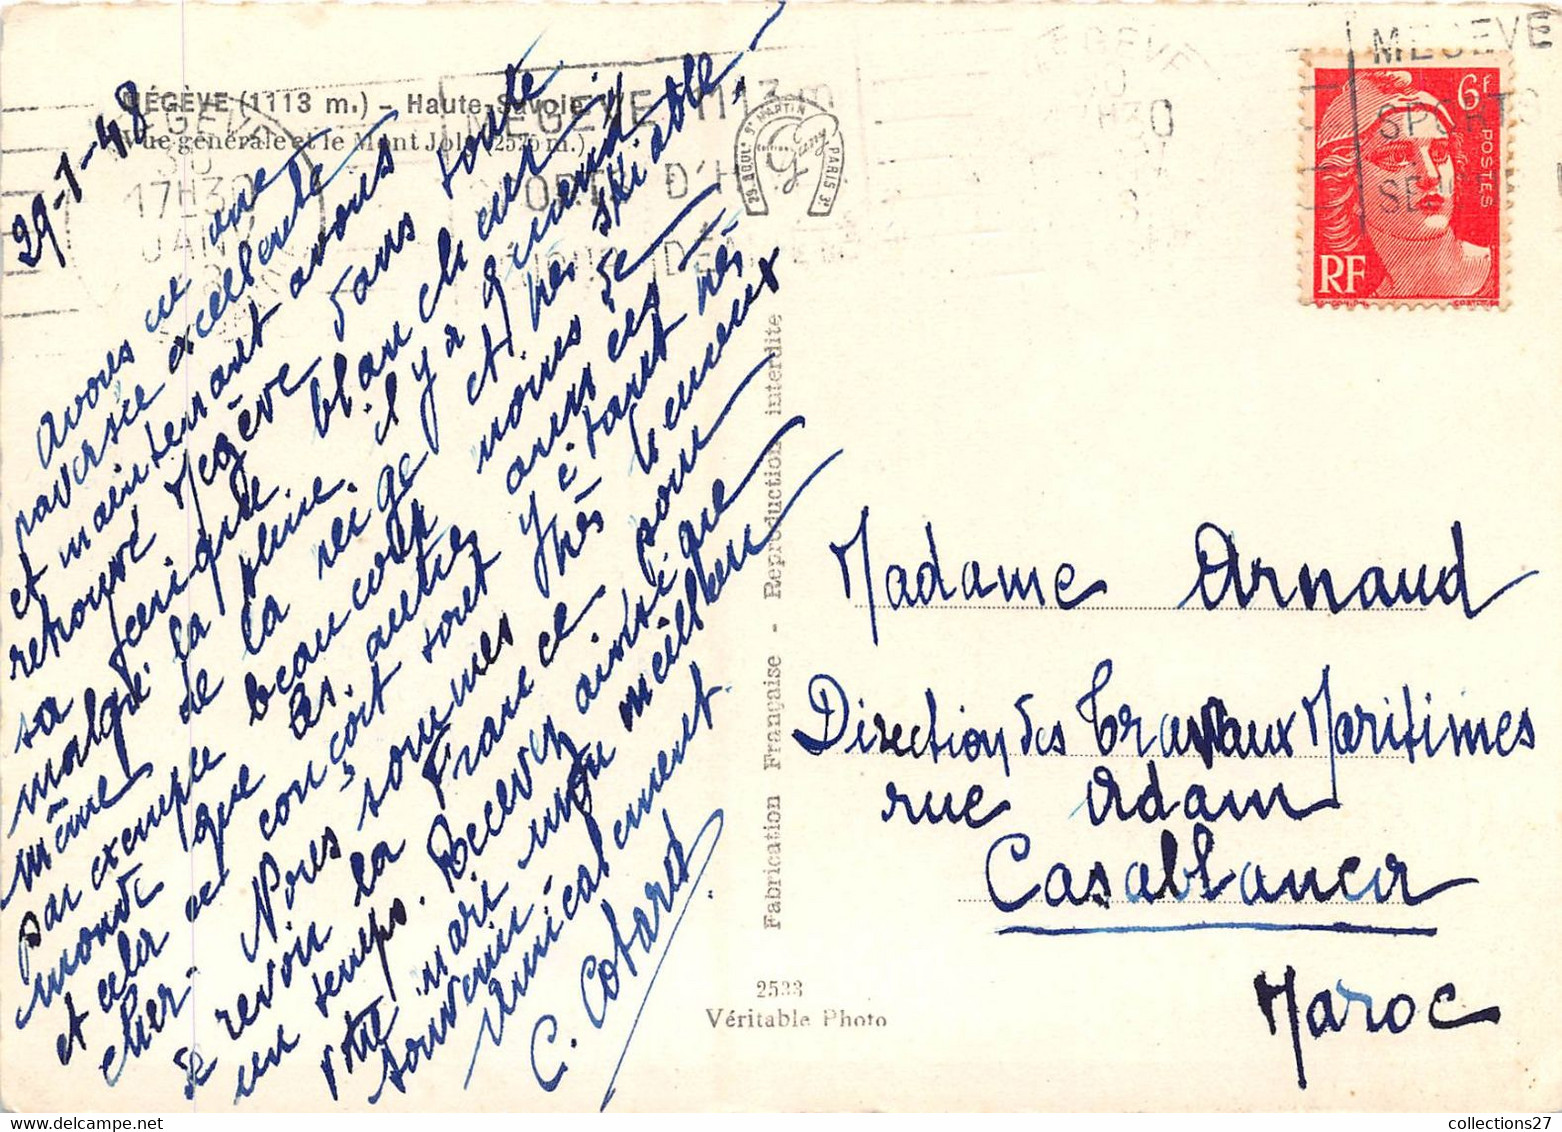 MÉGÈVE (1113 m.) - Haute-Savoie
Vue générale et le Mont Joly (2525 m.)
29-1-48
avons eu une
traversée excellente
et maintenant avons
retrouvé Megève dans toute
sa féerique blancheur
malgré la pluie. il y a quand
même de la neige et très skiable,
par exemple beaucoup moins de
monde que les autres années
et cela se conçoit tout y étant très
cher. Nous sommes très heureux
de revoir la France pour
un temps. Recevez ainsi que
votre mari mon meilleur
souvenir.
Amicalement
C. Cotaret
MEGEVE
30
17H30
JANV
MEGEVE 1113 m
SPORTS D'H
29. BOUL. ST MARTIN
Guny
PARIS 3e
EGEVE
H30
MEGEVE
SPORTS
6F
POSTES
RF
Fabrication Française - Reproduction interdite
Madame Arnaud
Direction des Travaux Maritimes
rue Adam
Casablanca
Maroc
2533
Véritable Photo
collections27